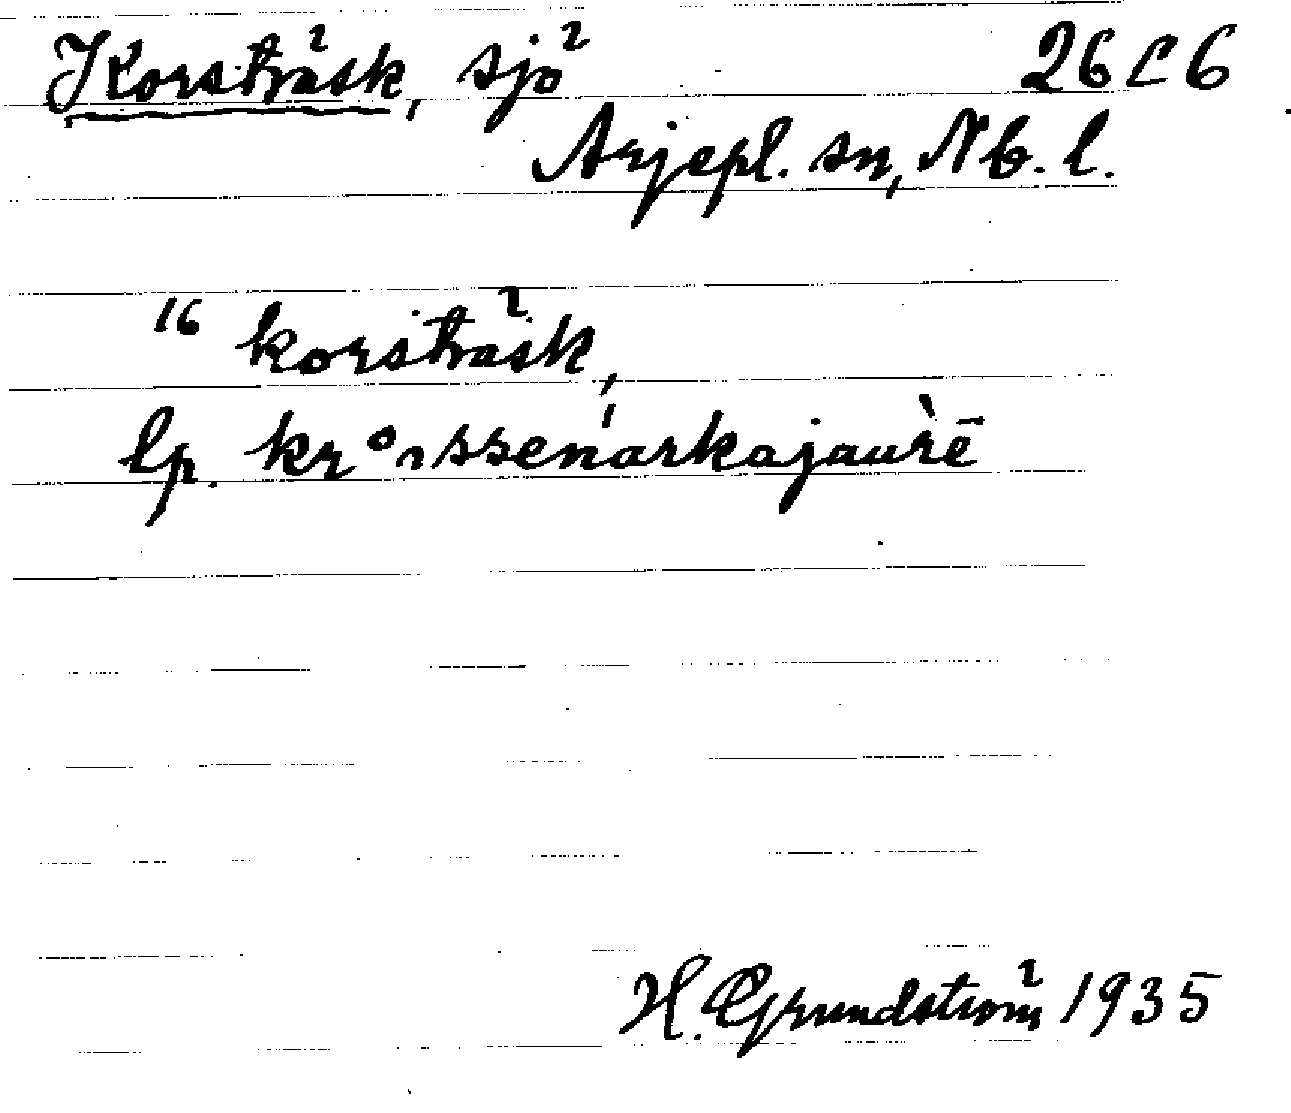 Korsträsk, sjö 26 C 6
Arjepl. sn, Nb. l.
16 korsträsk,
lp.
H. Grundström 1935